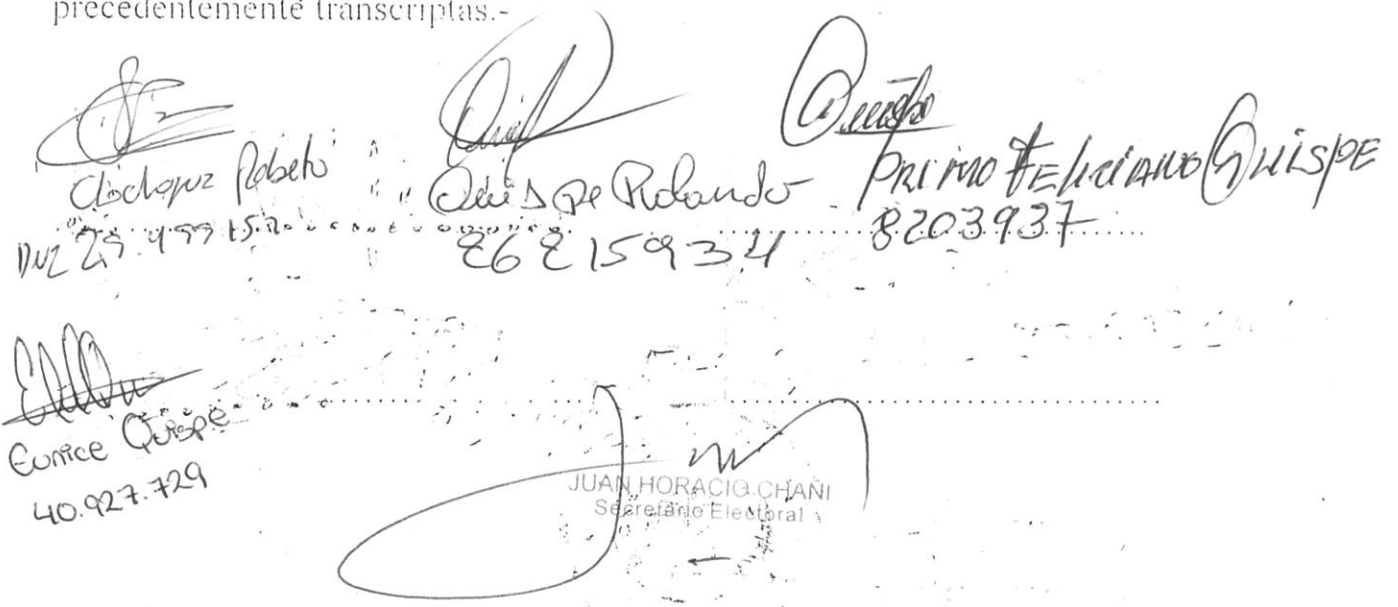 precedentemente transcriptas.-
Roberto
Quispe Rolando
26215934
PRIMO FELICIANO QUISPE
8203937
Eunice Quispe
40.927.729
JUAN HORACIO CHAÑI
Secretario Electoral